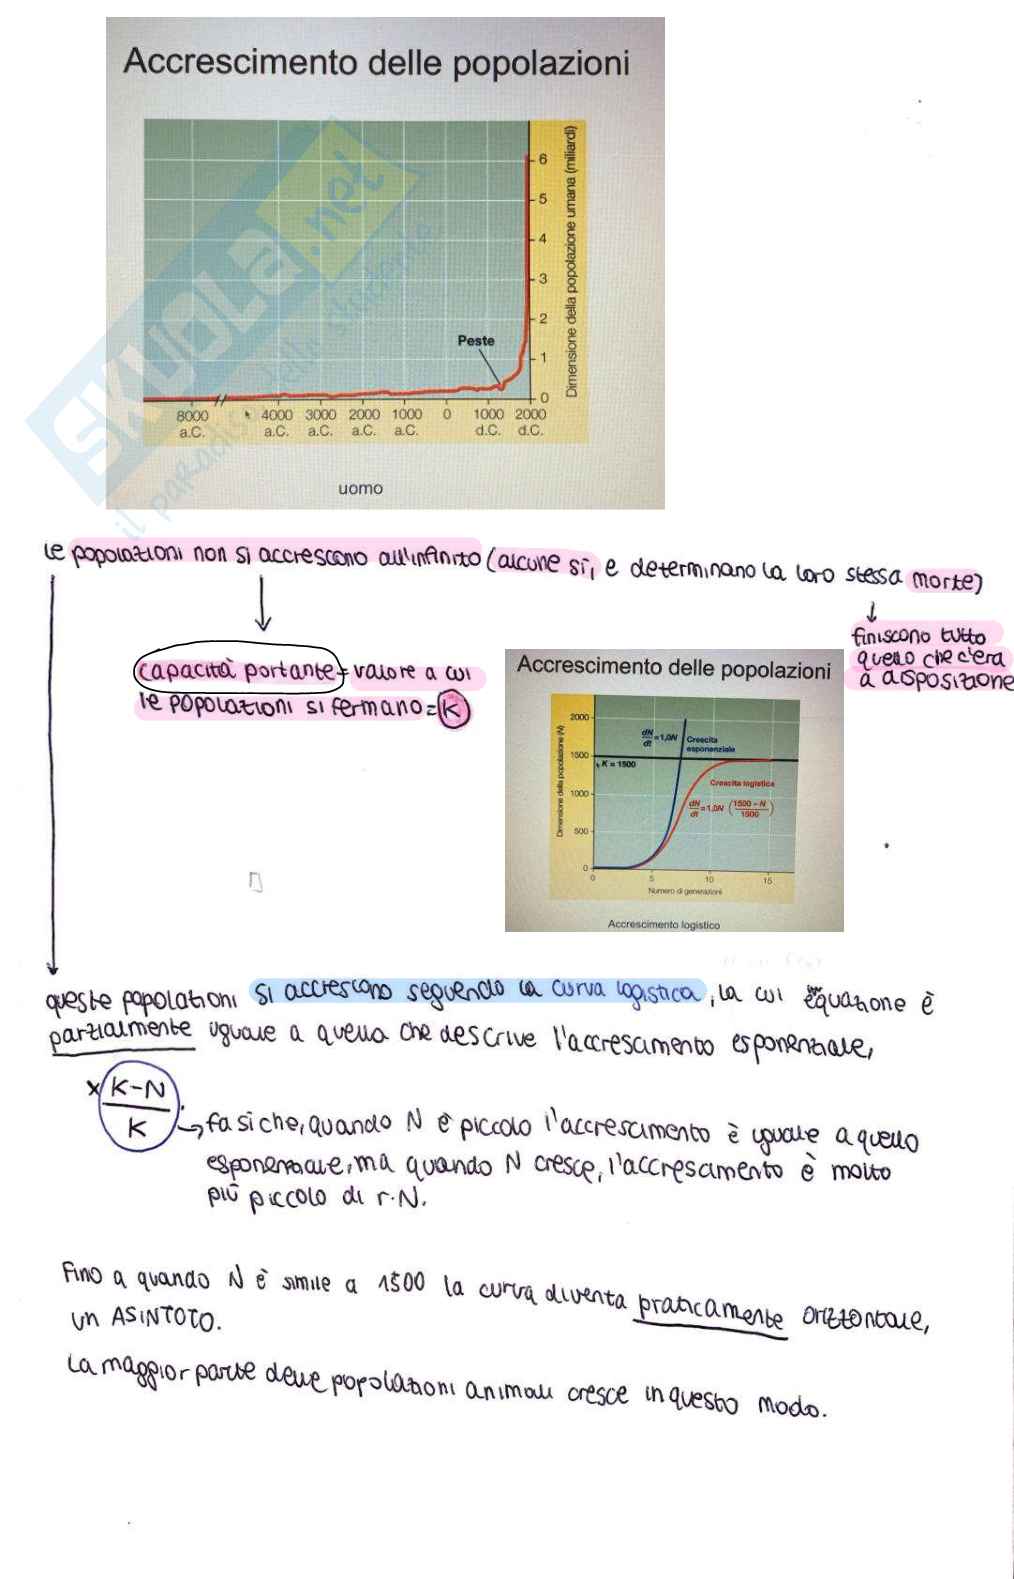 Accrescimento delle popolazioni
SKUOLA.net
il paradiso dello studente
Dimensione della popolazione umana (miliardi)
6
5
4
3
2
1
0
Peste
8000 4000 3000 2000 1000 0 1000 2000
a.C. a.C. a.C. a.C. a.C. d.C. d.C.
uomo
le popolazioni non si accrescono all'infinito (alcune sì, e determinano la loro stessa morte)
finiscono tutto
quello che c'era
a disposizione
capacità portante = valore a cui
le popolazioni si fermano = K
Accrescimento delle popolazioni
Dimensione della popolazione (N)
2000
1500
1000
500
0
dN/dt = 1,0N
Crescita
esponenziale
K = 1500
Crescita logistica
dN/dt = 1,0N (1500 - N / 1500)
0 5 10 15
Numero di generazioni
Accrescimento logistico
queste popolazioni si accrescono seguendo la curva logistica, la cui equazione è
parzialmente uguale a quella che descrive l'accrescimento esponenziale,
x K-N
K
fa sì che, quando N è piccolo l'accrescimento è uguale a quello
esponenziale, ma quando N cresce, l'accrescimento è molto
più piccolo di r·N.
Fino a quando N è simile a 1500 la curva diventa praticamente orizzontale,
un ASINTOTO.
La maggior parte delle popolazioni animali cresce in questo modo.